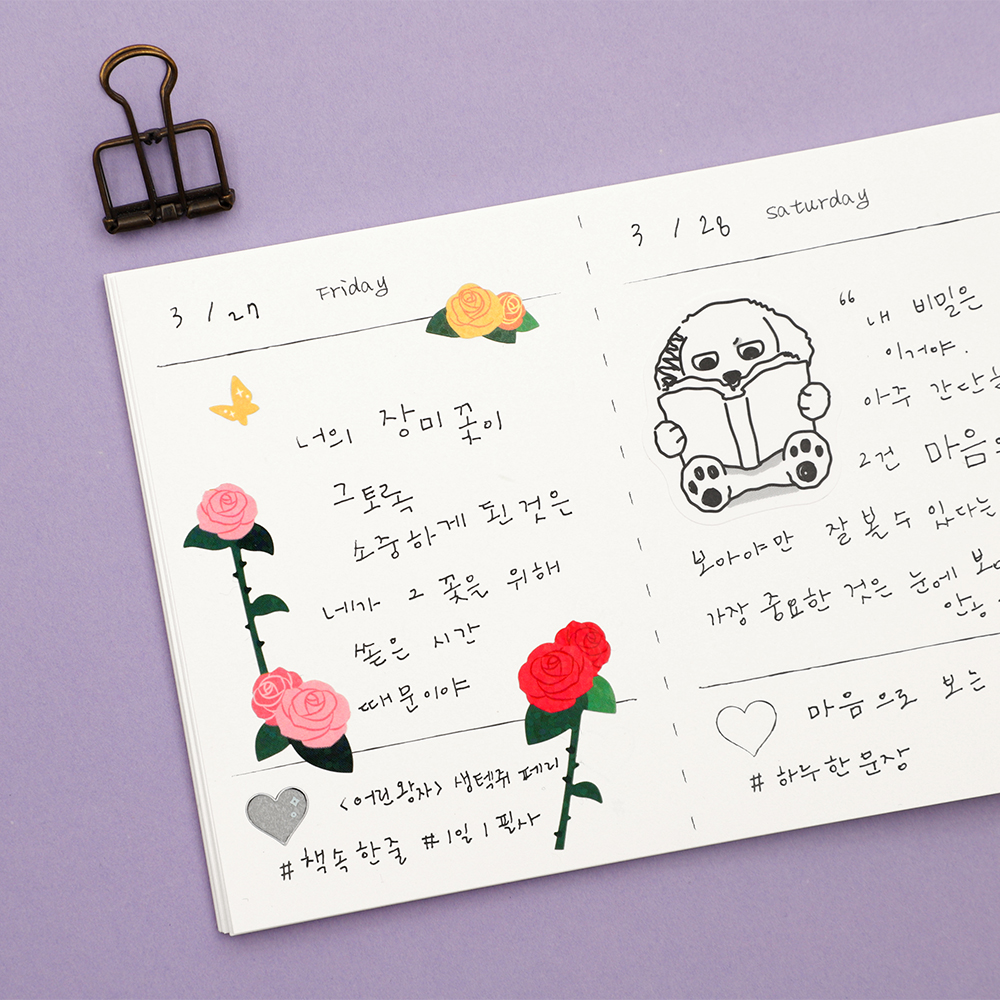 3 / 27 Friday
너의 장미꽃이
그토록
소중하게 된 것은
네가 그 꽃을 위해
쏟은 시간
때문이야
<어린왕자> 생텍쥐페리
#책속한줄 #1일1필사
3 / 28 Saturday
“ 내 비밀은
이거야.
아주 간단한
그건 마음으
보아야만 잘 볼 수 있다는
가장 중요한 것은 눈에 보
안
마음으로 보는
#하루한문장